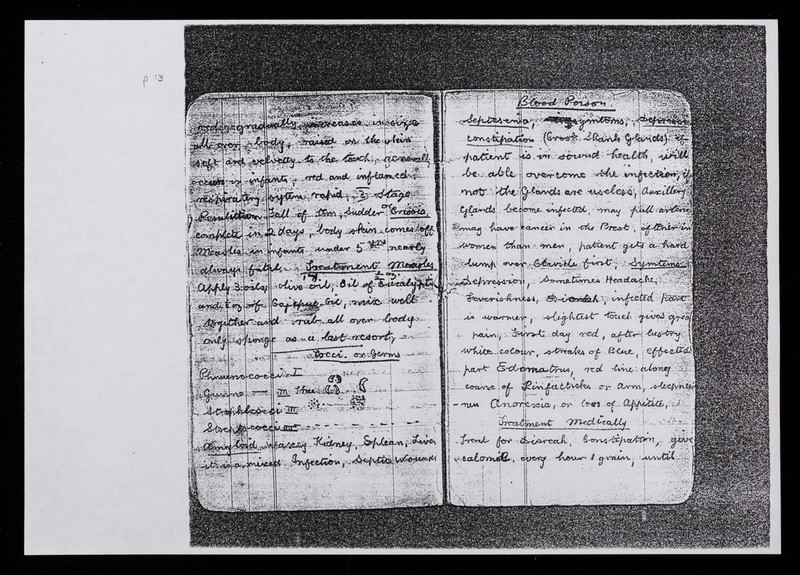 p 13
gradually increases in size
all over body, raised on the skin
soft and velvety to the touch, generally
occurs in infants, red and inflamed,
respiratory system rapid, 3 Stage
fall of tem, sudden or Crisis
complete in 2 days, body skin comes off
Measles in infants under 5 yrs nearly
always fatal. Treatment Measles
Apply 3 oils, olive oil, Oil of Eucalyptus
and of Cajeput Oil, mix well
together and rub all over body
only sponge as a last resort,
Cocci or Germs
III
Amyloid Kidney, Spleen, Liver
it is a mixed Infection, Septic Wounds
Blood Poison
Septesemia, symtoms,
constipation Glands) if
patient is in sound health, will
be able overcome the infection, if
not the Glands are useless, Auxillery
Glands become infected, may pull
may have cancer in the Brest, oftener in
women than men, patient gets a hard
lump over Clavicle first, Symtims
Depression, Sometimes Headache,
Feverishness, infected part
is warmer, slightest touch gives great
pain, First day red, after lustry
white colour, streaks of Blue, effected
part Edomatous, red line along
course of or arm, sleepness
ness Anorexia, or loss of Appitite,
Treatment Medically
Treat for Diareah, Constipation, give
calomel, every hour 1 grain, until